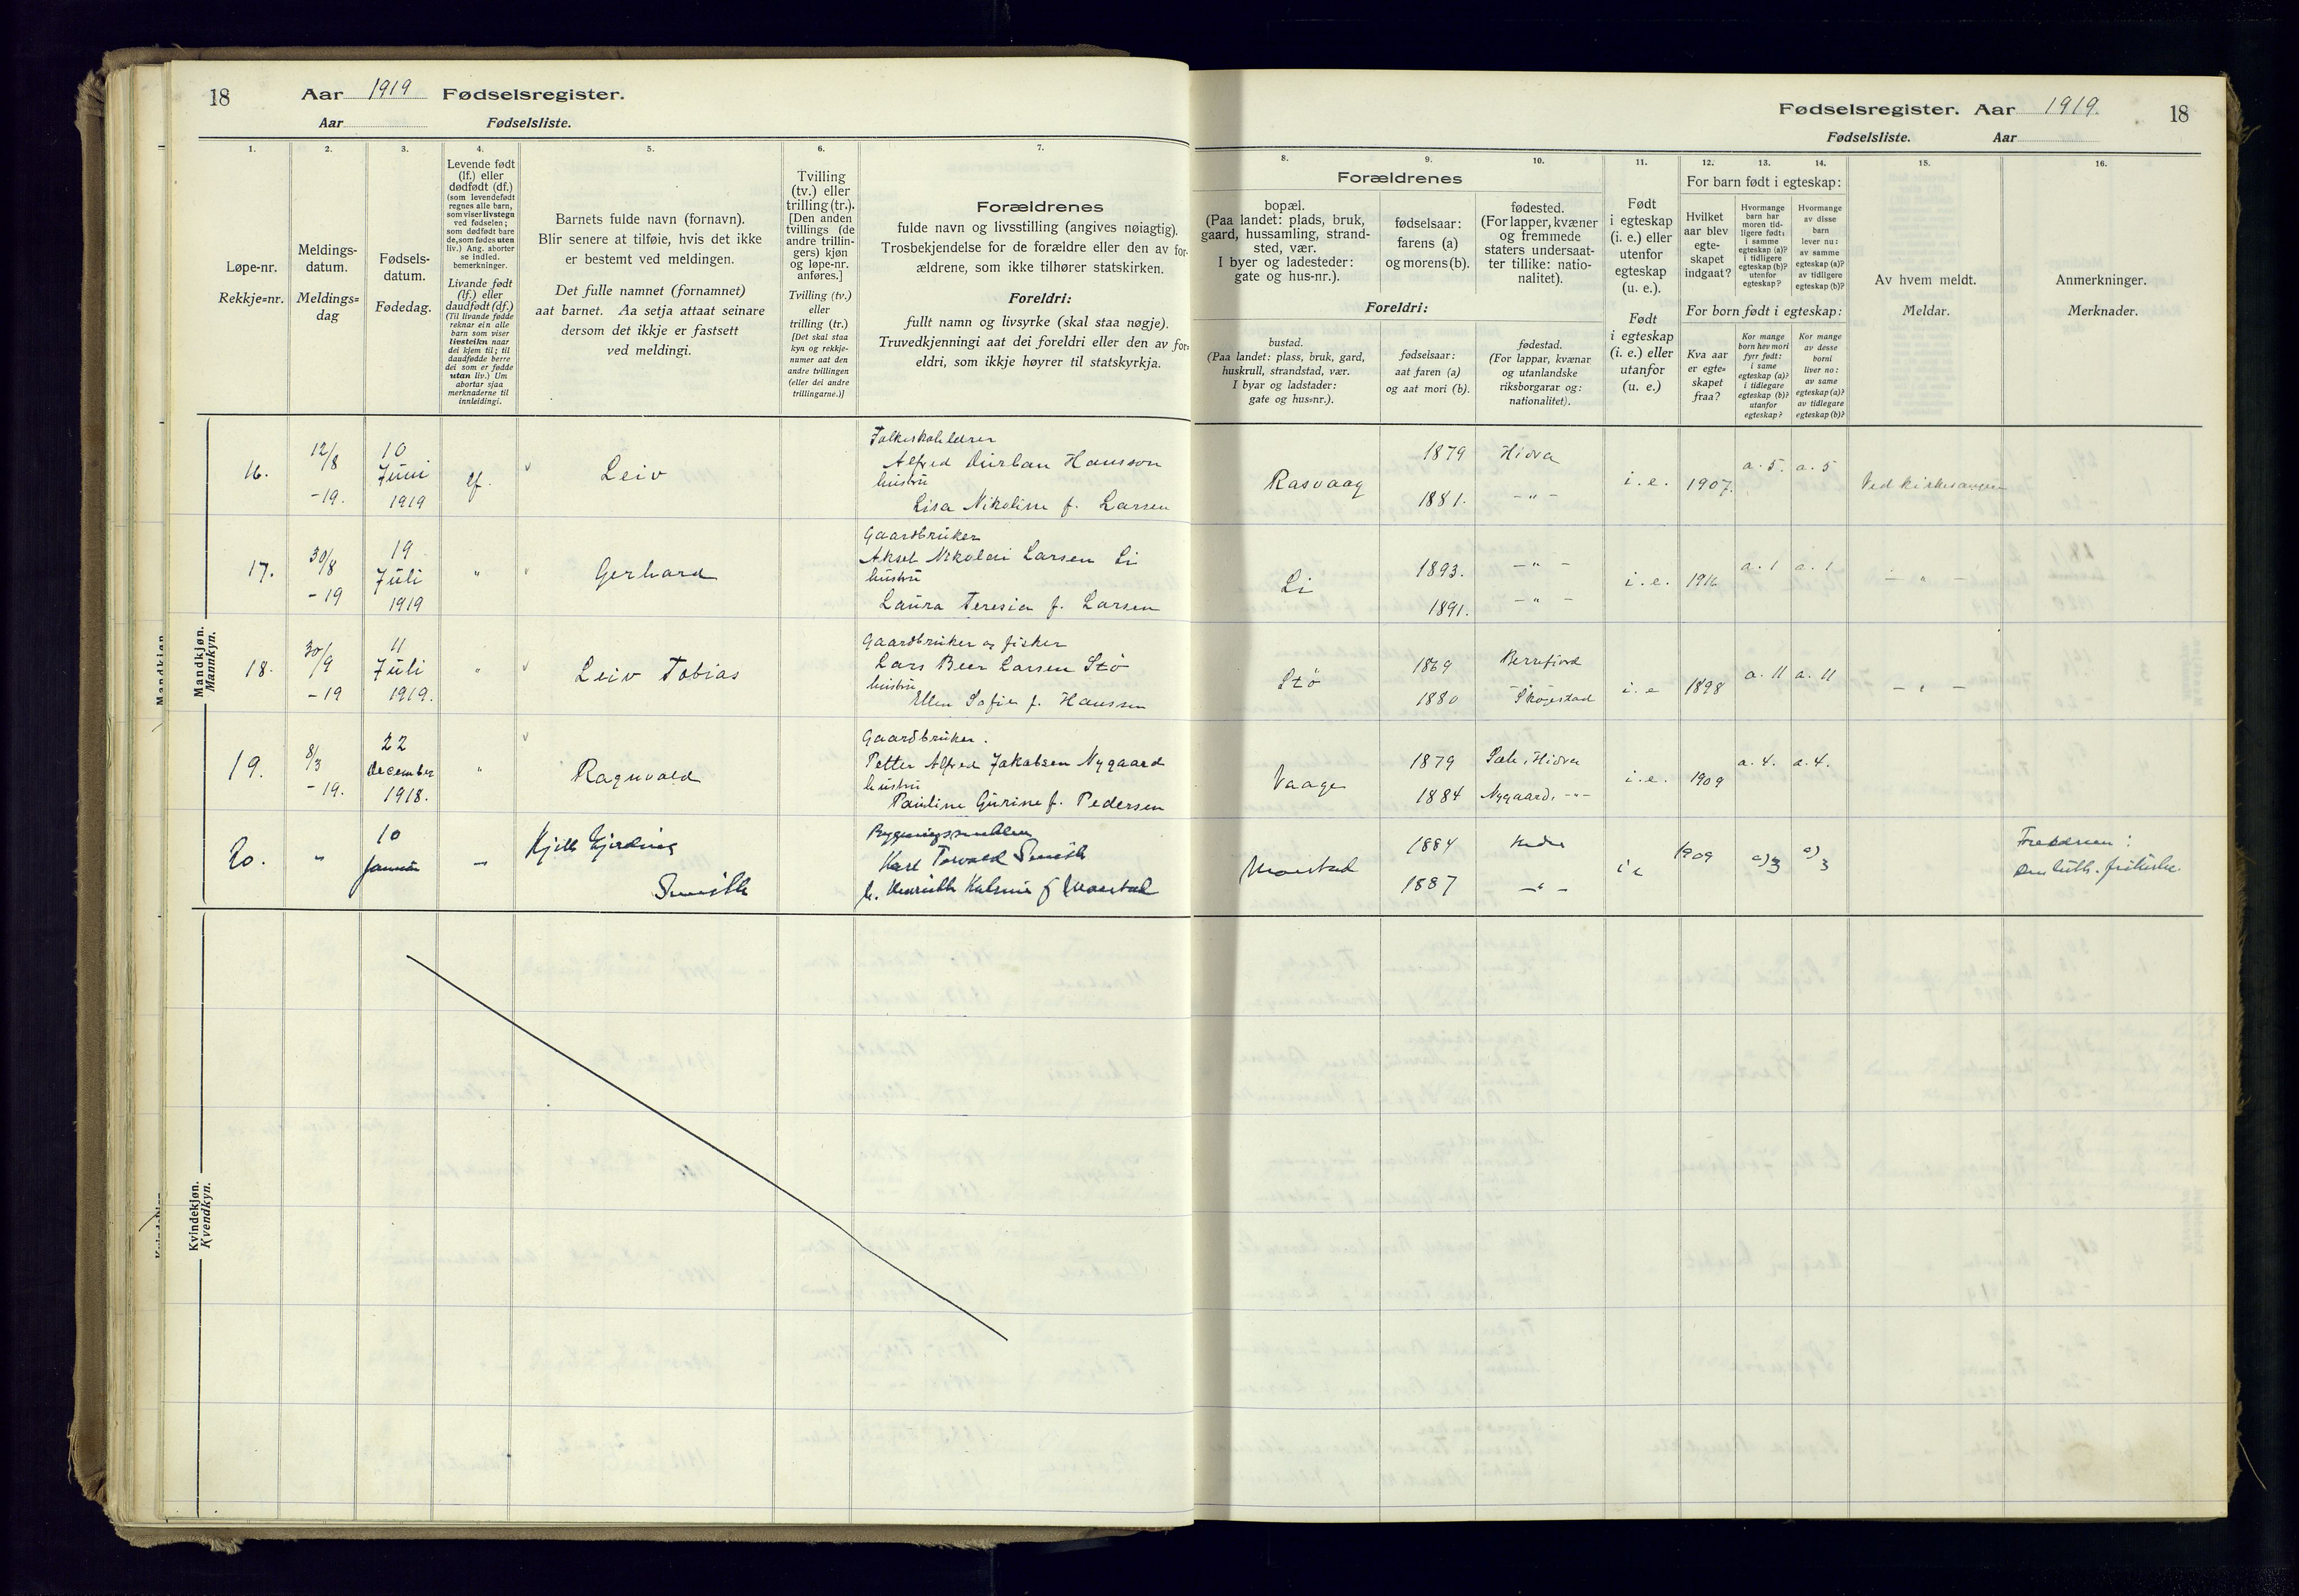 18 Aar 1919 Fødselsregister.
Aar Fødselsliste.
Fødselsregister. Aar 1919. 18
Fødselsliste. Aar
1. 2. 3. 4. 5. 6. 7.
Løpe-nr.
Rekkje=nr.
Meldings-
datum.
Meldings=
dag
Fødsels-
datum.
Fødedag.
Levende født
(lf.) eller
dødfødt (df.)
(som levendefødt
regnes alle barn,
som viser livstegn
ved fødselen;
som dødfødt bare
de, som fødes uten
liv.) Ang. aborter
se indled.
bemerkninger.
Livande født
(lf.) eller
daudfødt (df.)
(Til livande fødde
reknar ein alle
born som viser
livsteikn naar
dei kjem til; til
daudfødde berre
dei som er fødde
utan liv.) Um
abortar sjaa
merknaderne til
innleidingi.
Barnets fulde navn (fornavn).
Blir senere at tilføie, hvis det ikke
er bestemt ved meldingen.
Det fulle namnet (fornamnet)
aat barnet. Aa setja attaat seinare
dersom det ikkje er fastsett
ved meldingi.
Tvilling
(tv.) eller
trilling (tr.).
[Den anden
tvillings (de
andre trillin-
gers) kjøn
og løpe-nr.
anføres.]
Tvilling (tv.)
eller
trilling (tr.)
[Det skal staa
kyn og rekkje-
numer aat den
andre tvillingen
(eller dei andre
trillingarne.)]
Forældrenes
fulde navn og livsstilling (angives nøiagtig).
Trosbekjendelse for de forældre eller den av for-
ældrene, som ikke tilhører statskirken.
Foreldri:
fullt namn og livsyrke (skal staa nøgje).
Truvedkjenningi aat dei foreldri eller den av for-
eldri, som ikkje høyrer til statskyrkja.
8. 9. 10. 11. 12. 13. 14. 15. 16.
Forældrenes
bopæl.
(Paa landet: plads, bruk,
gaard, hussamling, strand-
sted, vær.
I byer og ladesteder:
gate og hus-nr.).
fødselsaar:
farens (a)
og morens (b).
fødested.
(For lapper, kvæner
og fremmede
staters undersaat-
ter tillike: natio-
nalitet).
Foreldri:
bustad.
(Paa landet: plass, bruk, gard,
huskrull, strandstad, vær.
I byar og ladstader:
gate og hus=nr.).
fødselsaar:
aat faren (a)
og aat mori (b).
fødestad.
(For lappar, kvænar
og utanlandske
riksborgarar og:
nationalitet).
Født
i egteskap
(i. e.) eller
utenfor
egteskap
(u. e.).
Født
i egteskap
(i. e.) eller
utanfor
(u. e.)
For barn født i egteskap:
Hvilket
aar blev
egte-
skapet
indgaat?
Hvormange
barn har
moren tid-
ligere født:
i samme
egteskap (a)?
i tidligere
egteskap (b)?
utenfor
egteskap?
Hvormange
av disse
barn
lever nu:
av samme
egteskap (a)?
av tidligere
egteskap (b)?
For born født i egteskap:
Kva aar
er egte=
skapet
fraa?
Kor mange
born hev mori
fyrr født:
i same
egteskap (a)?
i tidlegare
egteskap (b)?
utanfor
egteskap?
Kor mange
av desse
borni
liver no:
av same
egteskap (a)?
av tidlegare
egteskap (b)?
Av hvem meldt.
Meldar.
Anmerkninger.
Merknader.
Mandkjøn.
Mannkyn.
16. 12/8 -19. 10 Juni 1919 lf. Leiv
Folkeskolelærer
Alfred Durban Hansson
hustru
Lisa Nikoline f. Larsen
Rasvaag 1879 Hidra
1881. -"-
i. e. 1907. a. 5. a. 5 Ved kirkesangeren
17. 30/8 -19 19 Juli 1919 " Gerhard
Gaardbruker
Aksel Nikolai Larsen Li
hustru
Laura Teresia f. Larsen
Li 1893. -"-
1891. -"-
i. e. 1916 a. 1 a. 1 -"-
18. 30/9 -19 11 Juli 1919. " Leiv Tobias
Gaardbruker og fisker
Lars Beer Larsen Stø
hustru
Ellen Sofie f. Hanssen
Stø 1869 Berrefjord
1880 Skogestad
i. e 1898 a. 11 a. 11 -"-
19. 8/3 -19. 22 December 1918. " Ragnvald
Gaardbruker.
Petter Alfred Jakobsen Nygaard
hustru
Pauline Gurine f. Pedersen
Vaage 1879 Sæle i Hidra
1884 Nygaard, -"-
i. e. 1909 a. 4. a. 4.
20. " 10 Januar -
Smith
Karl Torvald Smith
1884
1887 -"-
i e 1909 a) 3 a) 3
Forældrene:
Den luth. frikirke.
Kvindekjøn.
Kvendkyn.
Mandkjøn